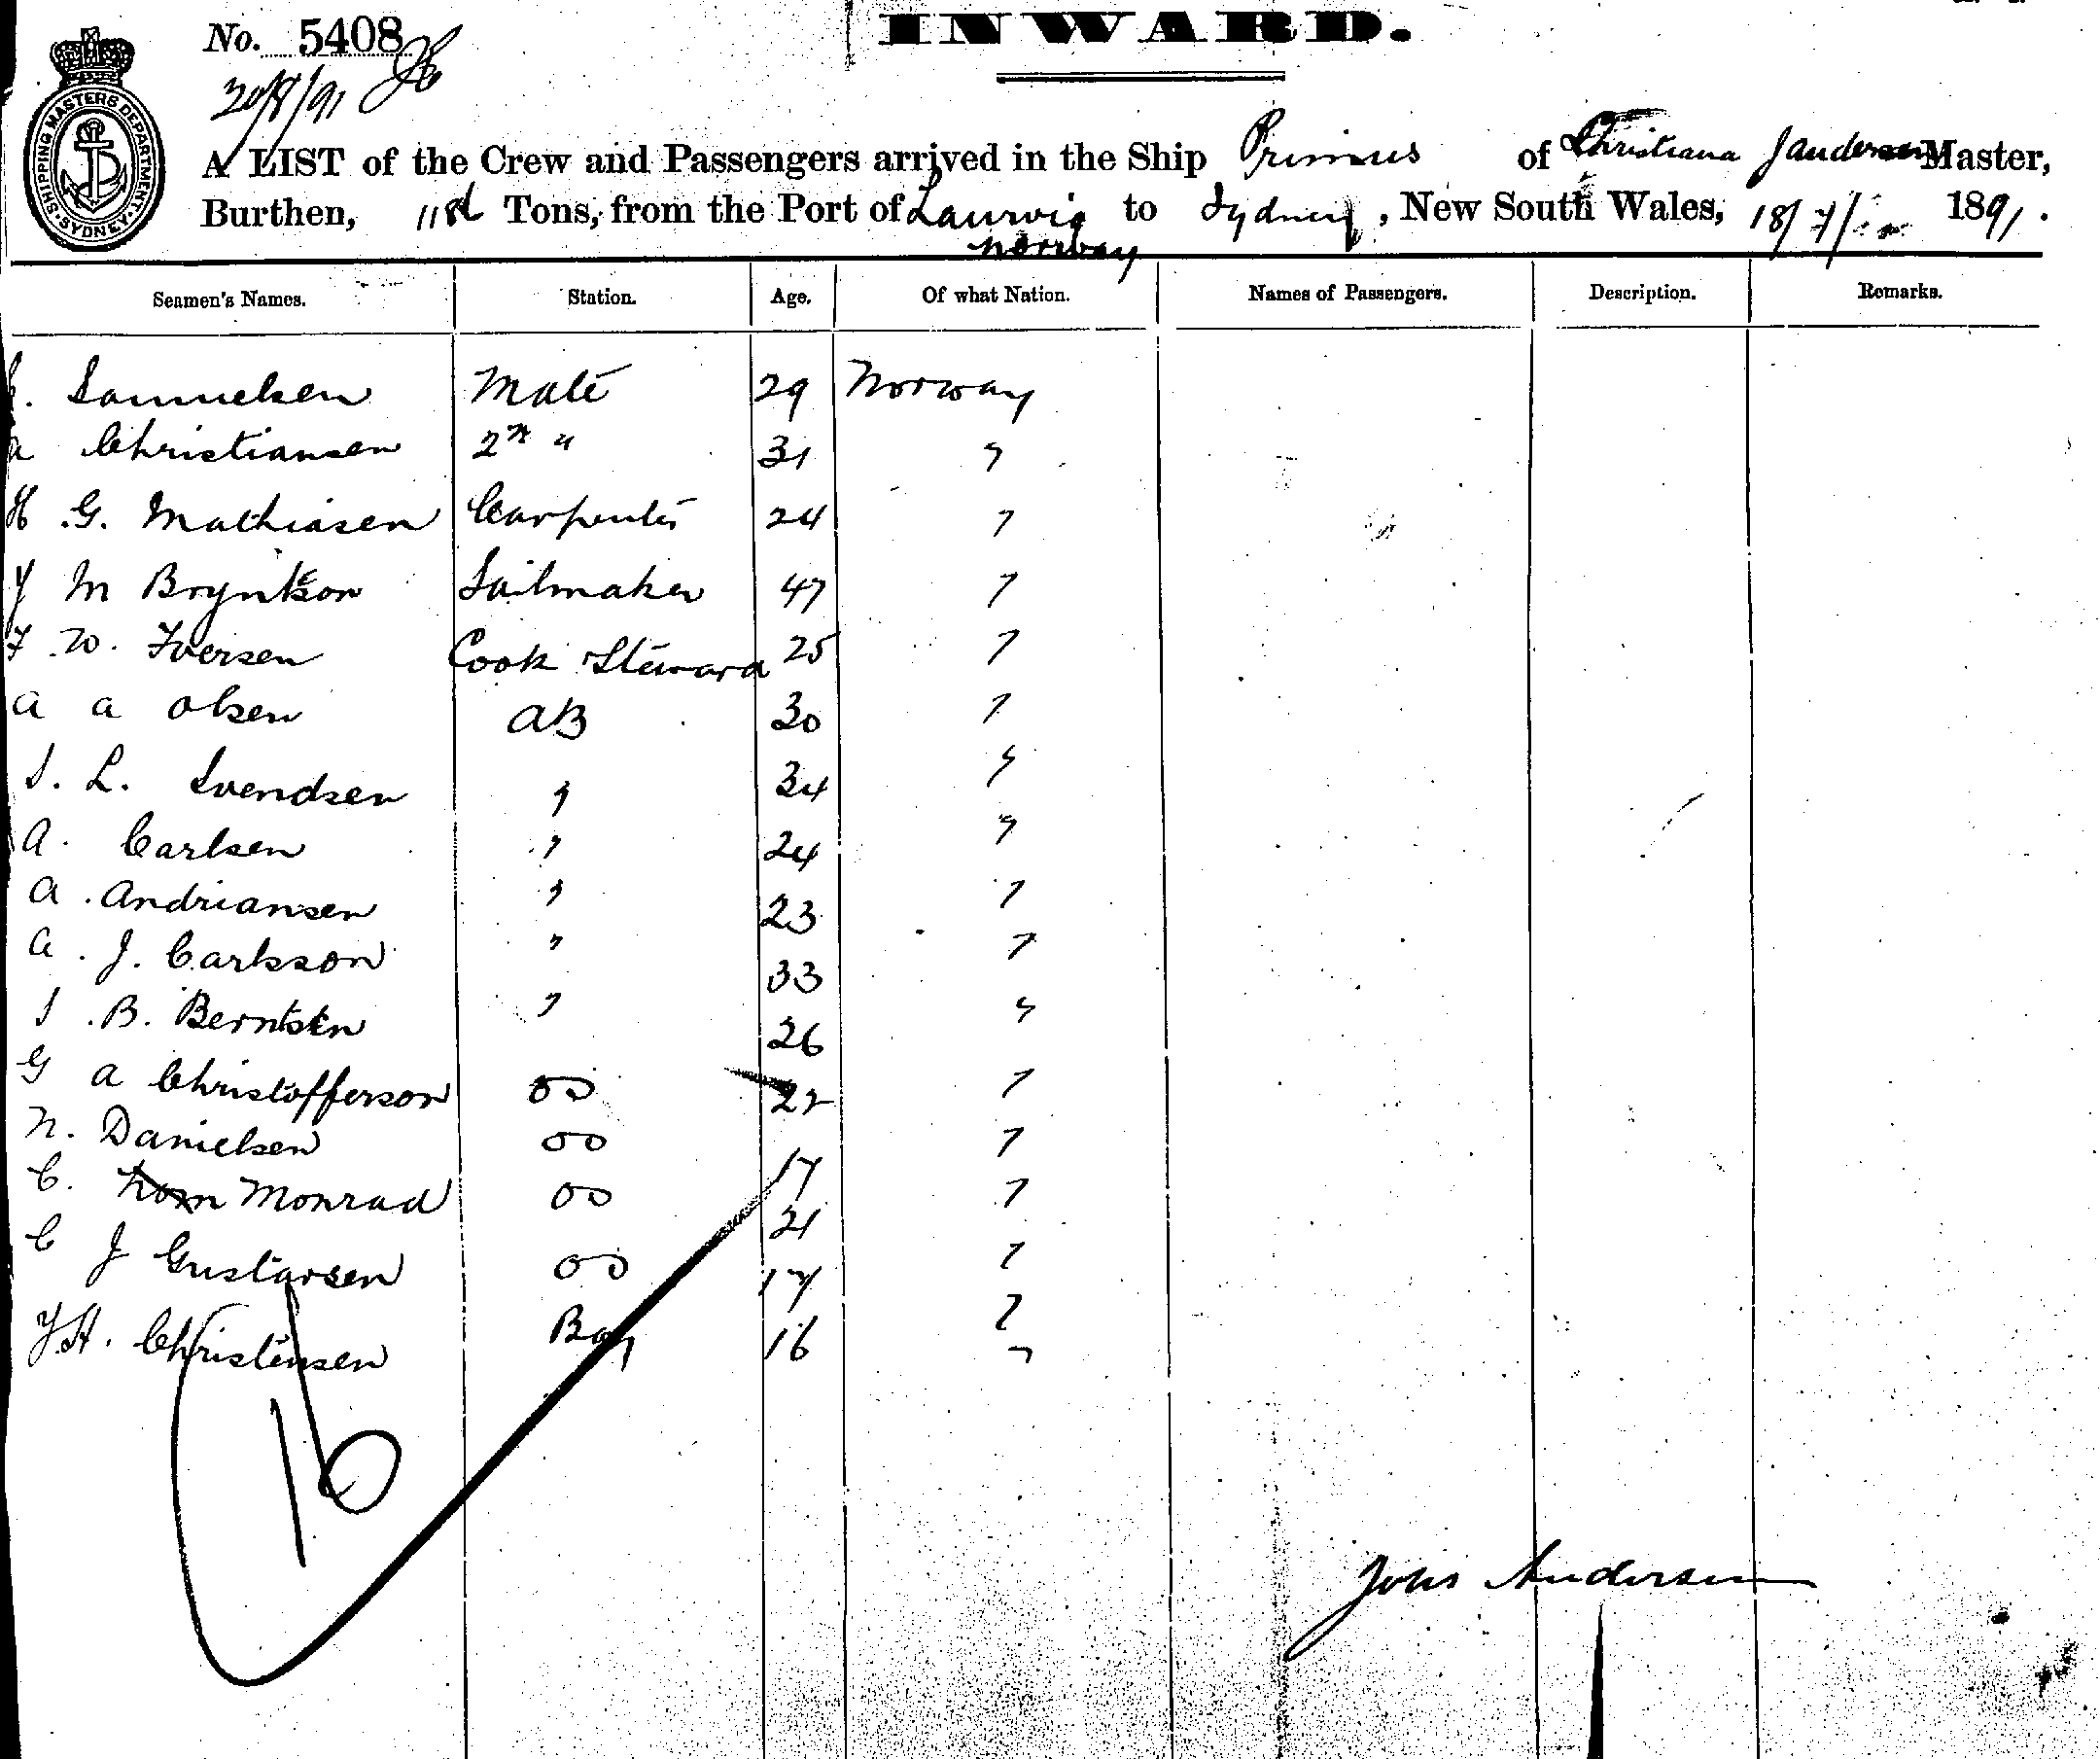 No. 5408
INWARD.
20/8/91
SHIPPING MASTERS DEPARTMENT. SYDNEY.
A LIST of the Crew and Passengers arrived in the Ship Primus of Christiana J Andersen Master,
Burthen, Tons, from the Port of Laurvig to Sydney, New South Wales, 18/ 1891.
Norway
Seamen's Names. Station. Age. Of what Nation. Names of Passengers. Description. Remarks.
Samuelsen Mate 29 Norway
a Christiansen 2nd " 31 "
H. G. Mathiasen Carpenter 24 "
M Bryntson Sailmaker 47 "
F. W. Iversen Cook Steward 25 "
a a Olsen AB 30 "
S. L. Svendsen " 34 "
A. Carlsen " 24 "
A. Andriansen " 23 "
A. J. Carlsson " 33 "
S. B. Berntsen " 26 "
G a Christofferson OS 22 "
N. Danielsen OS 17 "
C. Monrad OS 21 "
C J Gustavsen OS 17 "
J.H. Christensen Boy 16 "
16
Johs Andersen